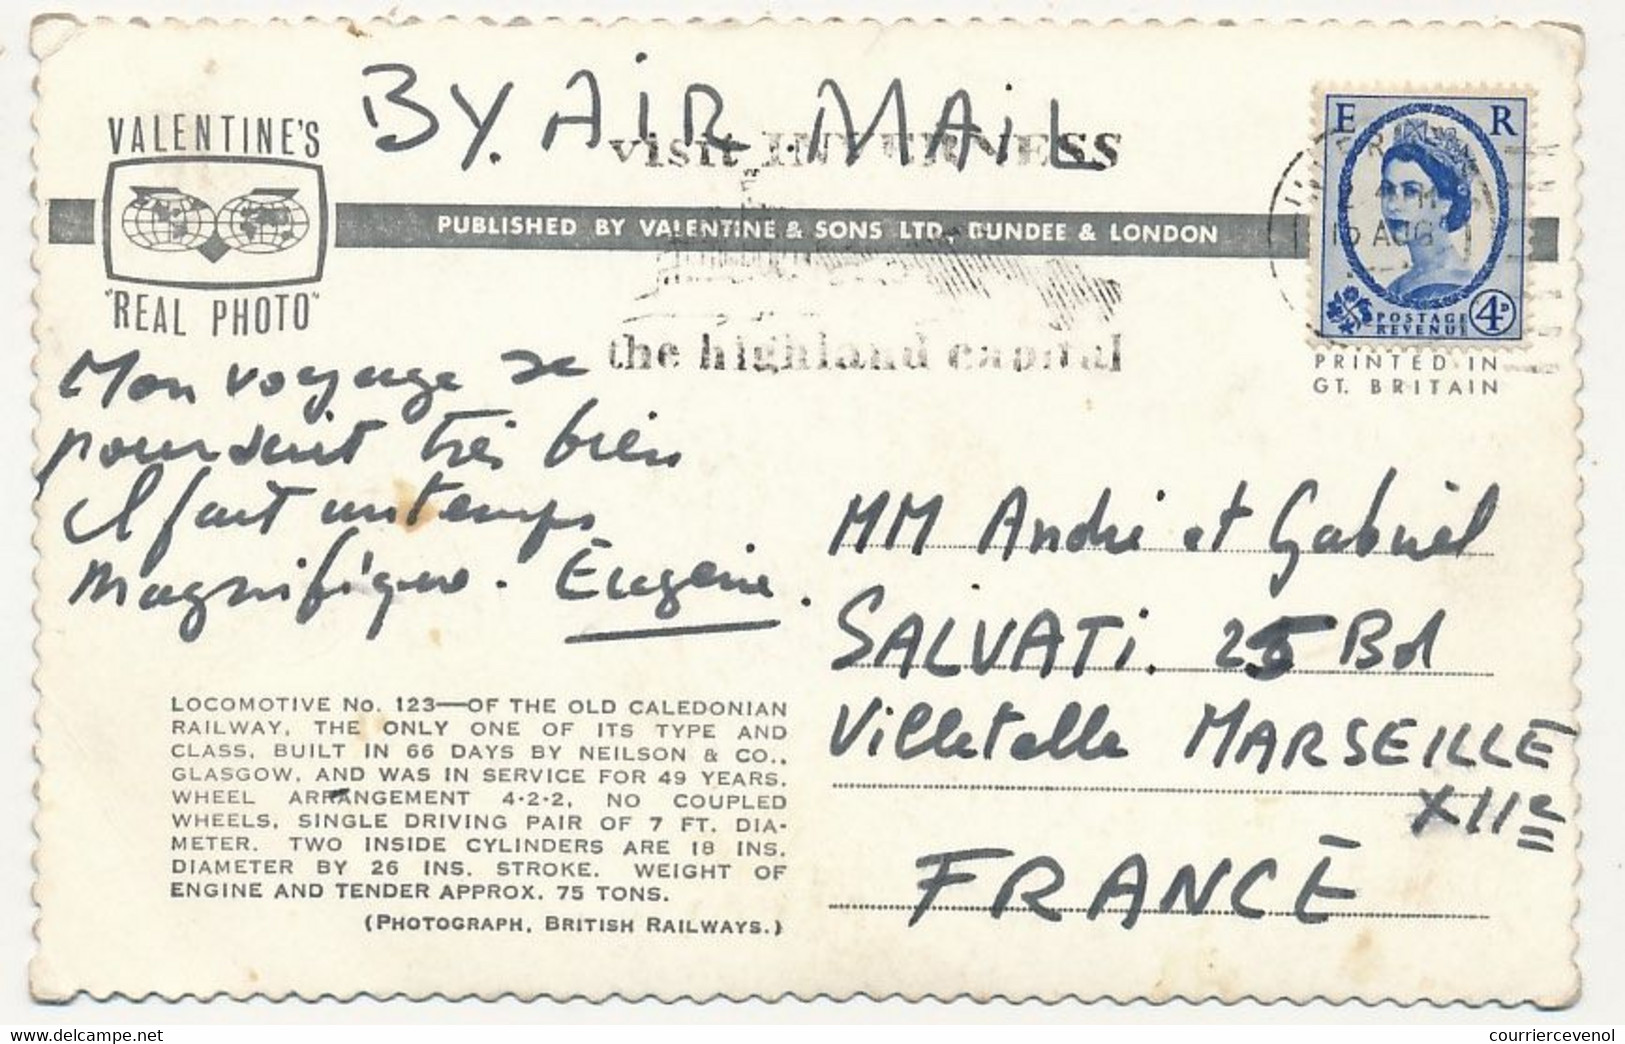 BY AIR MAIL
visit INVERNESS
the highland capital
VALENTINE'S
"REAL PHOTO"
PUBLISHED BY VALENTINE & SONS LTD, DUNDEE & LONDON
E R
15 AUG
POSTAGE
REVENUE
4D
PRINTED IN
GT. BRITAIN
Mon voyage se
poursuit très bien
il fait un temps
magnifique. Eugène.
MM André et Gabriel
SALVATI. 25 Bd
Villetelle MARSEILLE
XIIe
FRANCE
LOCOMOTIVE No. 123—OF THE OLD CALEDONIAN
RAILWAY, THE ONLY ONE OF ITS TYPE AND
CLASS, BUILT IN 66 DAYS BY NEILSON & CO.,
GLASGOW, AND WAS IN SERVICE FOR 49 YEARS.
WHEEL ARRANGEMENT 4-2-2, NO COUPLED
WHEELS, SINGLE DRIVING PAIR OF 7 FT. DIA-
METER. TWO INSIDE CYLINDERS ARE 18 INS.
DIAMETER BY 26 INS. STROKE. WEIGHT OF
ENGINE AND TENDER APPROX. 75 TONS.
(PHOTOGRAPH, BRITISH RAILWAYS.)
delcampe.net
courriercevenol